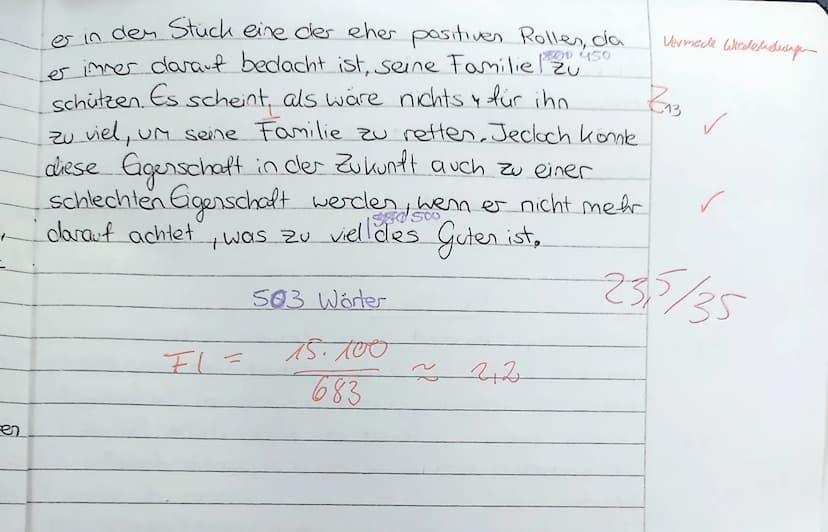 er in dem Stück eine der eher positiven Rollen, da
Vermeide Wiederholungen
er immer darauf bedacht ist, seine Familie | zu
450
schützen. Es scheint, als wäre nichts für ihn
Z13
zu viel, um seine Familie zu retten. Jedoch könnte
✓
diese Eigenschaft in der Zukunft auch zu einer
schlechten Eigenschaft werden, wenn er nicht mehr
✓
darauf achtet, was zu viel || des Guten ist.
500
503 Wörter
23,5/35
FI = 15·100 / 683 ≈ 2,2
en